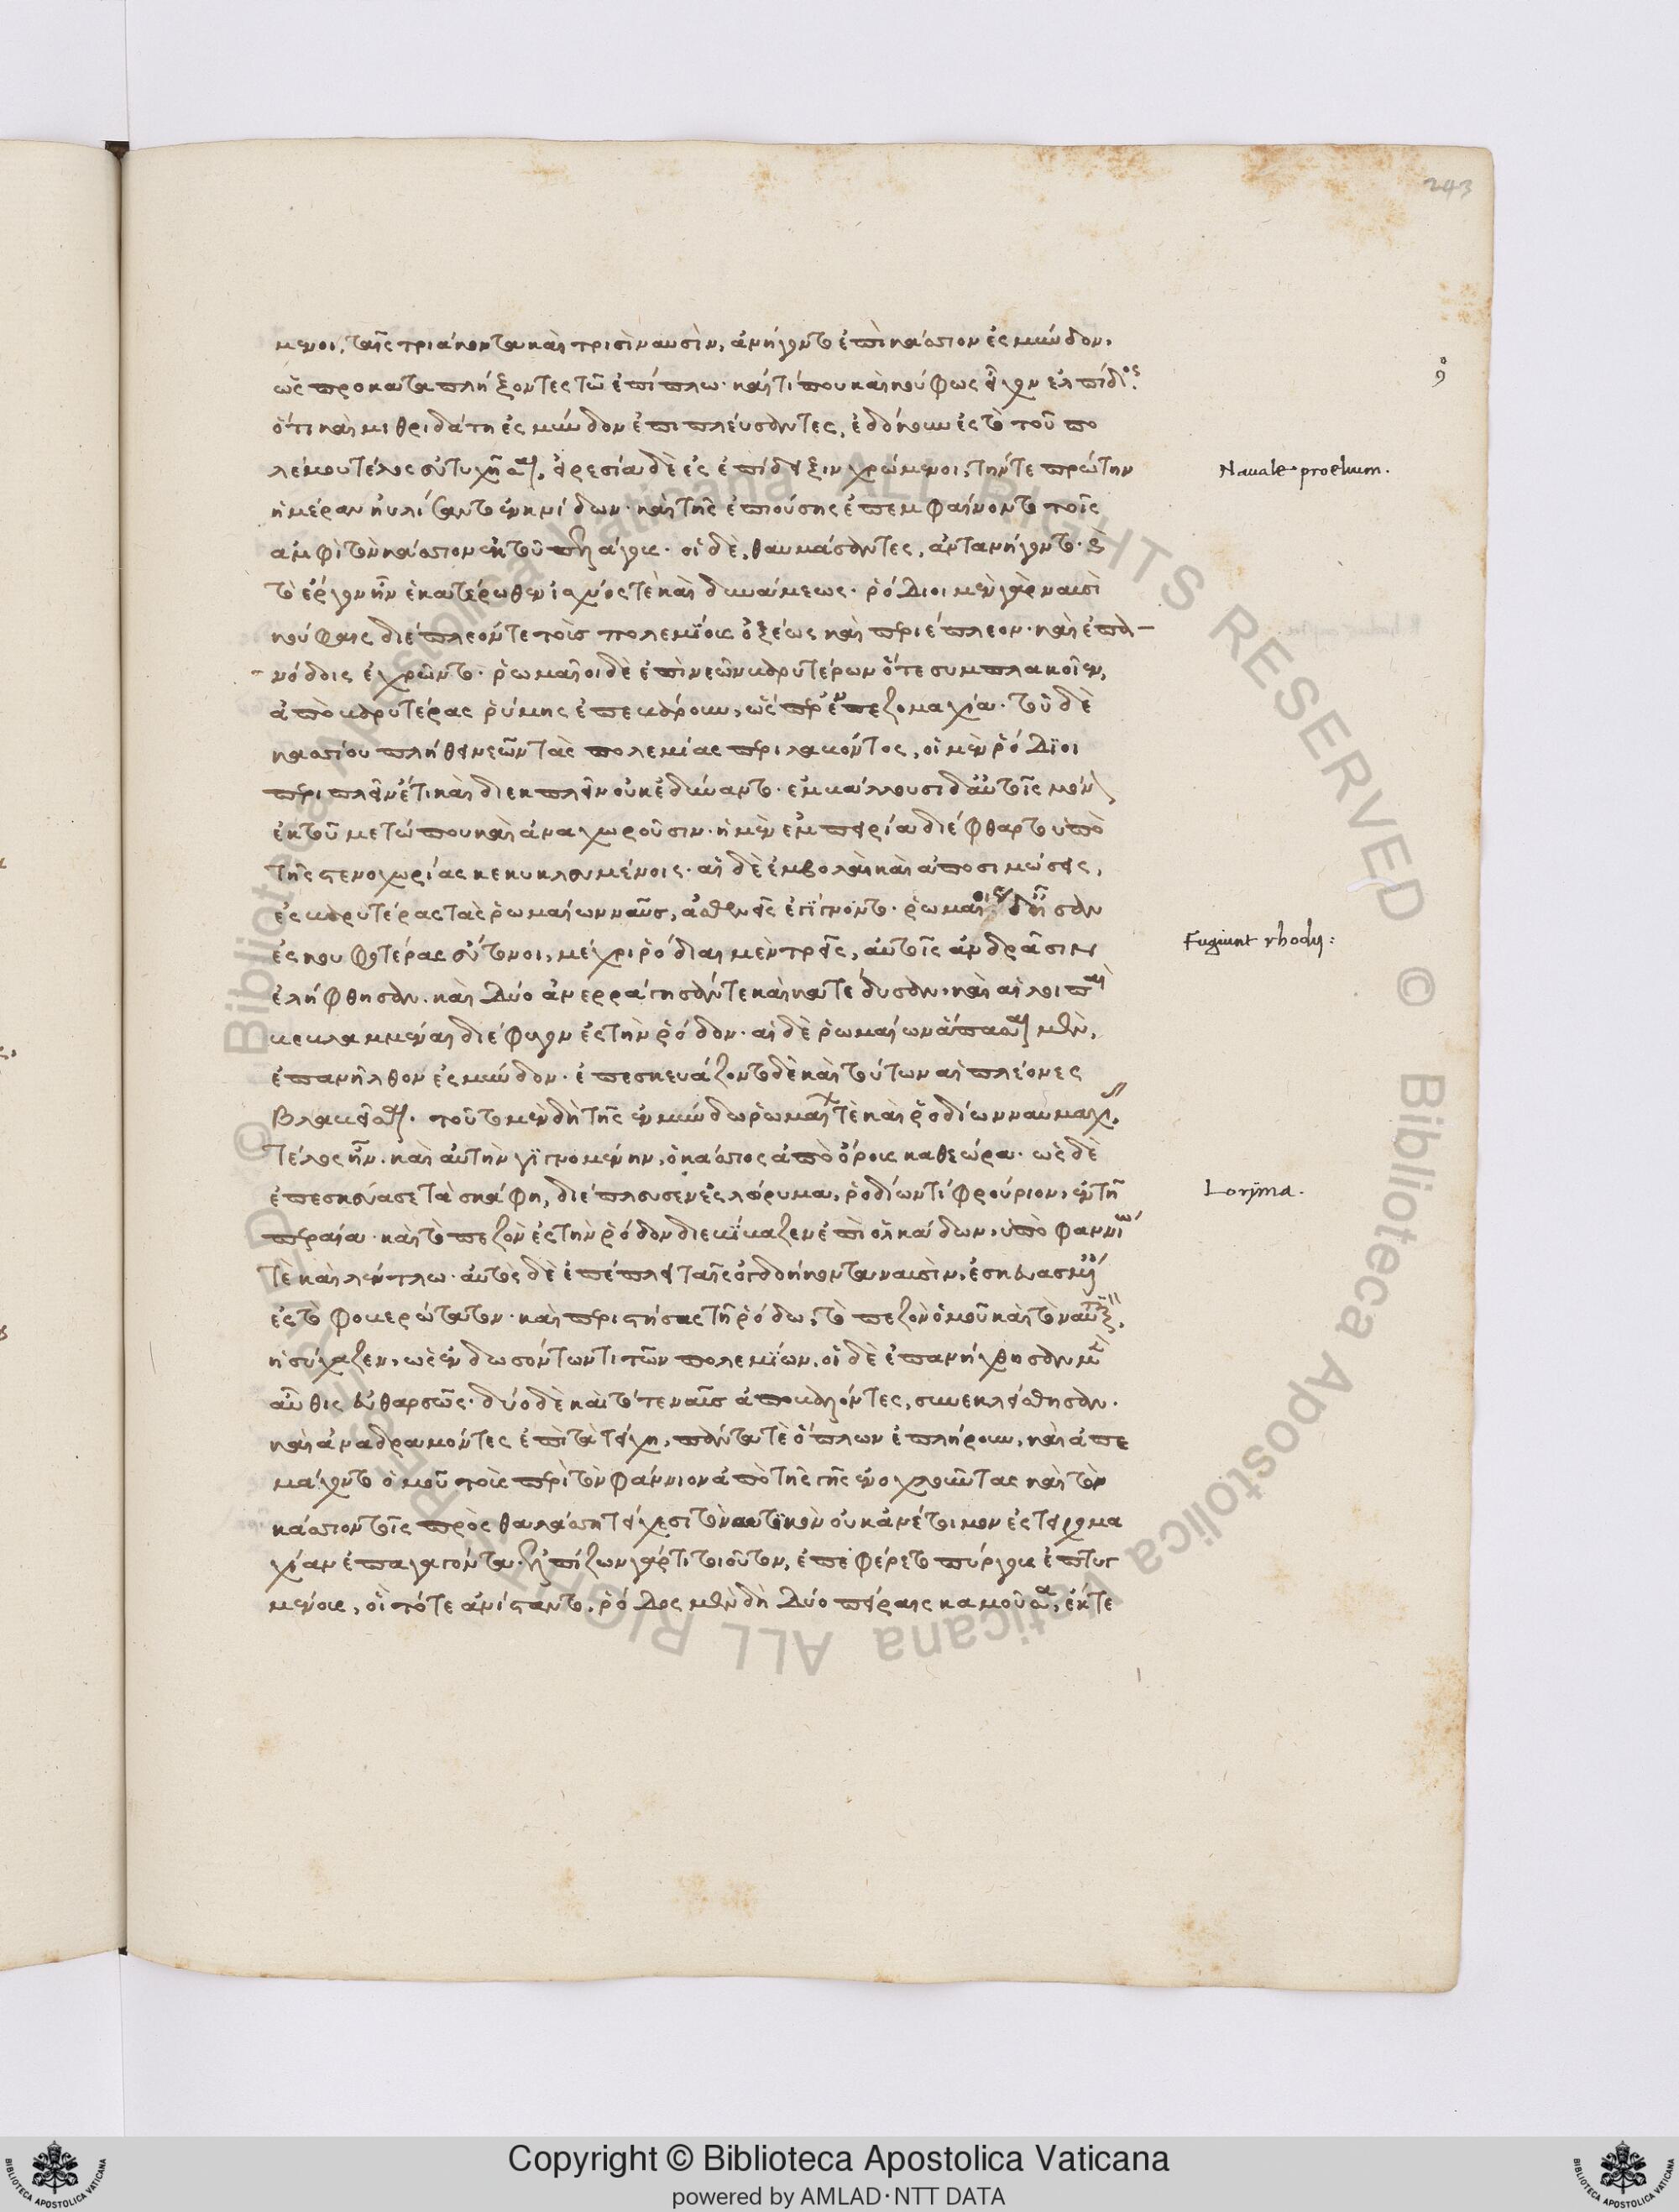 243
9
μενοι, ταῖς τριάκοντα καὶ τρισὶ ναυσὶν, ἀνήγοντο ἐπὶ κάσσιον ἐς μύνδον,
ὡς προκαταπλήξοντες τῶ ἐπίπλω. καί τι που καὶ κούφως εἶχον ἐλπίδος.
ὅτι καὶ μιθριδάτη ἐς μύνδον ἐπιπλεύσαντες, ἐδόκουν ἐς τὸ τοῦ πο
λέμου τέλος εὐτυχῆσαι. εἰρεσία δὲ ἐς ἐπίδειξιν χρώμενοι, τήν τε πρώτην
ἡμέραν ηὐλίσαντο ἐν κνίδω. καὶ τῆς ἐπιούσης ἐπεμφαίνοντο τοῖς
ἀμφὶ τὸν κάσσιον ἐκ τοῦ πελάγους. οἱ δὲ, θαυμάσαντες, ἀντανήγοντο. καὶ
τὸ ἔργον ἦν ἑκατέρωθεν ἰσχύος τὲ καὶ δυνάμεως. ῥόδιοι μὲν γὰρ ναυσὶ
κούφαις διέπλεόν τε τοῖς πολεμίοις ὀξέως καὶ περιέπλεον. καὶ ἐπα-
-νόδοις ἐχρῶντο. ῥωμαῖοι δὲ ἐπὶ νεῶν βαρυτέρων ὅτε συμπλακοῖεν,
ἀπὸ βαρυτέρας ῥύμης ἐπεβάρουν, ὥσπερ ἐν πεζομαχία. τοῦ δὲ
κασσίου πλήθει νεῶν τὰς πολεμίας περιλαβόντος, οἱ μὲν ῥόδιοι
περιπλεῖν ἔτι καὶ διεκπλεῖν οὐκ ἐδύναντο. ἐμβάλλουσι δ' αὐτοῖς μόνον
ἐκ τοῦ μετώπου καὶ ἀναχωροῦσιν. ἡ μὲν ἐμπειρία διέφθαρτο ὑπὸ
τῆς στενοχωρίας κεκυκλωμένοις. αἱ δὲ ἐμβολαὶ καὶ ἀποσιμώσεις,
ἐς βαρυτέρας τὰς ῥωμαίων ναῦς, ἀσθενεῖς ἐγίγνοντο. ῥωμαίοις δὲ ἦσαν
ἐς κουφοτέρας εὔτονοι, μέχρι ῥόδιαι μὲν τρεῖς, αὐτοῖς ἀνδράσιν
ἐλήφθησαν. καὶ δύο ἀνερράγησάν τε καὶ κατέδυσαν. καὶ αἱ λοιπαὶ
βεβλαμμέναι διέφυγον ἐς τὴν ῥόδον. αἱ δὲ ῥωμαίων ἅπασαι μὲν,
ἐπανῆλθον ἐς μύνδον. ἐπεσκευάζοντο δὲ καὶ τούτων αἱ πλείονες
βλαβεῖσαι. τοῦτο μὲν δὴ τῆς ἐν μύνδω ῥωμαίων τὲ καὶ ῥοδίων ναυμαχί.
τέλος ἦν. καὶ αὐτὴν γιγνομένην, ὁ κάσσιος ἀπὸ ὄρους καθεώρα. ὡς δὲ
ἐπεσκεύασε τὰ σκάφη, διέπλευσεν ἐς λώρυμα, ῥοδίων τι φρούριον, ἐν τῆ
περαία. καὶ τὸ πεζὸν ἐς τὴν ῥόδον διεβίβαζεν ἐπὶ ὁλκάδων, ὑπὸ φαννίω
τὲ καὶ λέντλω. αὐτὸς δὲ ἐπέπλει ταῖς ὀγδοήκοντα ναυσὶν, ἐσκευασμέν
ἐς τὸ φοβερώτατον. καὶ περιστήσας τῆ ῥόδω, τὸ πεζὸν ὁμοῦ καὶ τὸ ναυτικὸν,
ἡσύχαζεν, ὡς ἐνδωσόντων τι τῶν πολεμίων. οἱ δὲ ἐπανήχθησαν μὲν
αὖθις εὐθαρσῶς. δύο δὲ καὶ τότε ναῦς ἀποβαλόντες, συνεκλείσθησαν.
καὶ ἀναδραμόντες ἐπὶ τὰ τείχη, πάντα τὲ ὅπλων ἐπλήρουν, καὶ ἀπε
μάχοντο ὁμοῦ τοὺς περὶ τὸν φάννιον ἀπὸ τῆς γῆς ἐνοχλοῦντας καὶ τὸν
κάσσιον τοῖς πρὸς θαλάσση τείχεσι τὸ ναυτικὸν οὐκ ἀνέτοιμον ἐς τειχομα
χίαν ἐπαγαγόντα. ἐλπίζων γάρ τι τοιοῦτον, ἐπεφέρετο πύργους ἐπτυγ
μένους, οἳ τότε ἀνίσταντο. ῥόδος μὲν δὴ δύο πείραις καμοῦσα, ἔκ τε
Nauale proelium.
Fugiunt rhodij:
Lorÿma.
Copyright © Biblioteca Apostolica Vaticana
powered by AMLAD·NTT DATA